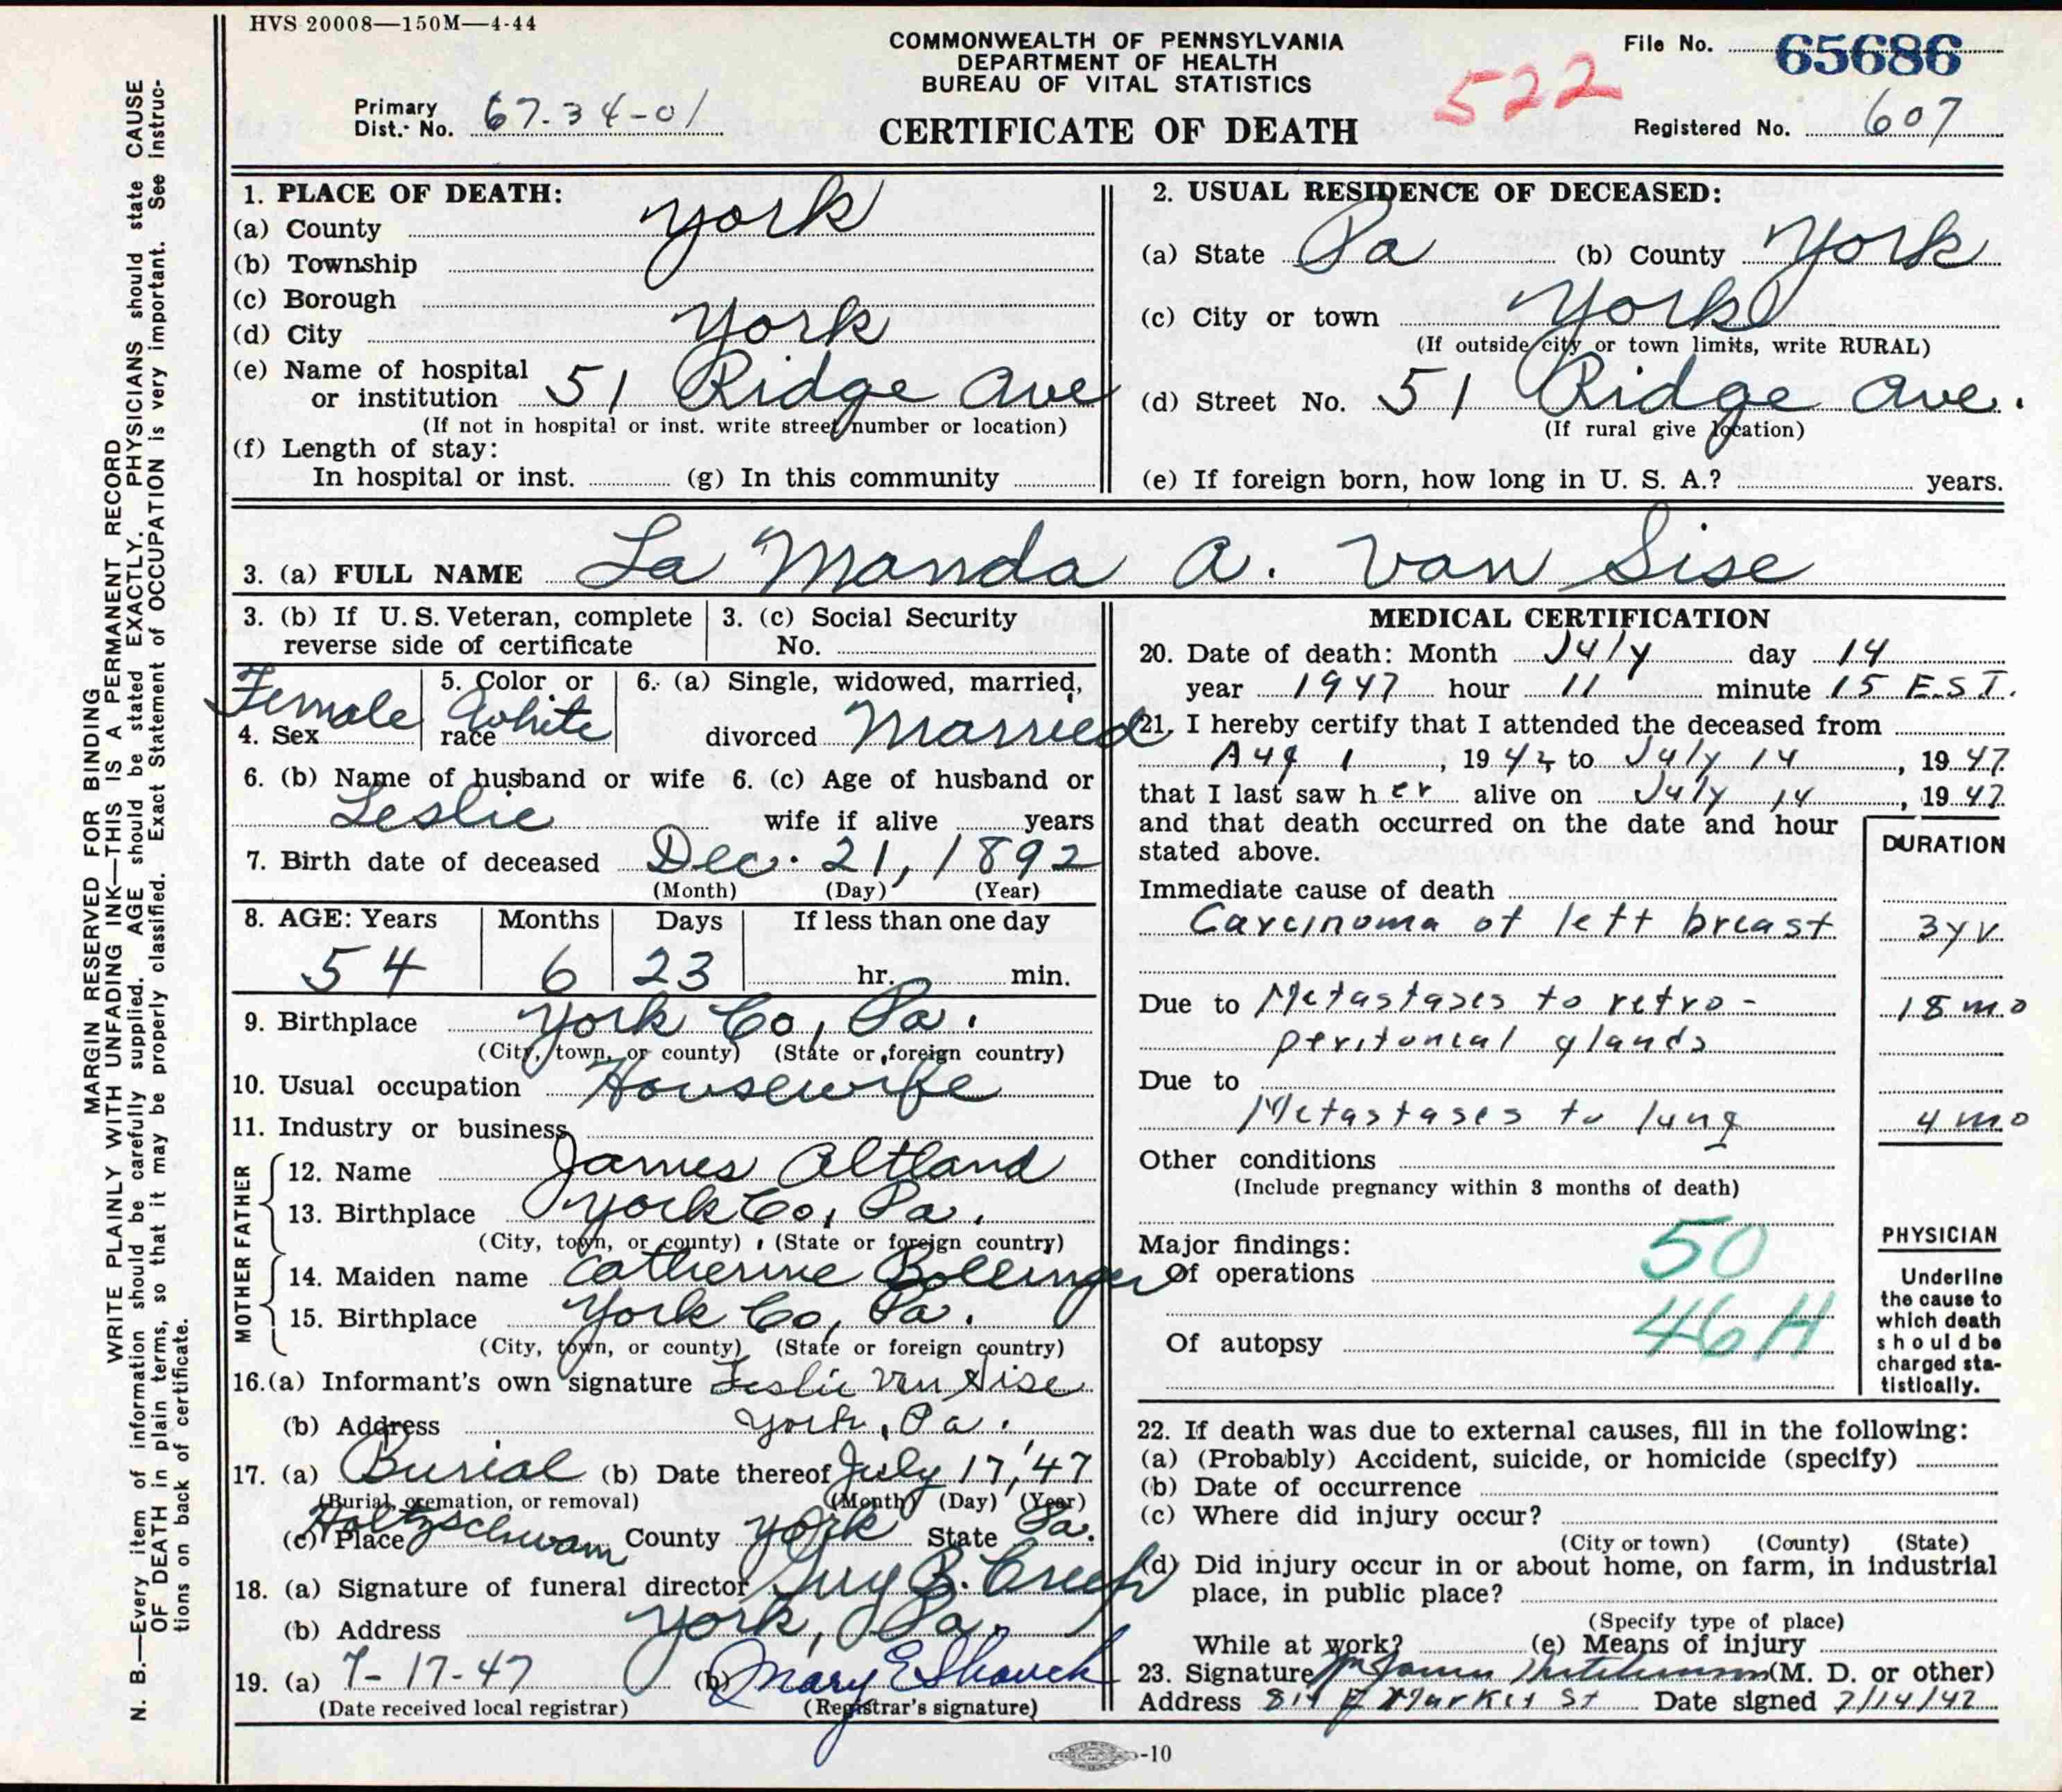 HVS 20008—150M—4-44
COMMONWEALTH OF PENNSYLVANIA
DEPARTMENT OF HEALTH
BUREAU OF VITAL STATISTICS
CERTIFICATE OF DEATH
Primary
Dist. No. 67-34-01
522
File No. 65686
Registered No. 607
MARGIN RESERVED FOR BINDING
WRITE PLAINLY WITH UNFADING INK—THIS IS A PERMANENT RECORD
N. B.—Every item of information should be carefully supplied. AGE should be stated EXACTLY. PHYSICIANS should state CAUSE
OF DEATH in plain terms, so that it may be properly classified. Exact Statement of OCCUPATION is very important. See instruc-
tions on back of certificate.
1. PLACE OF DEATH:
(a) County York
(b) Township
(c) Borough
(d) City York
(e) Name of hospital
or institution 51 Ridge Ave
(If not in hospital or inst. write street number or location)
(f) Length of stay:
In hospital or inst. (g) In this community
2. USUAL RESIDENCE OF DECEASED:
(a) State Pa (b) County York
(c) City or town York
(If outside city or town limits, write RURAL)
(d) Street No. 51 Ridge Ave.
(If rural give location)
(e) If foreign born, how long in U. S. A.? years.
3. (a) FULL NAME La Manda A. Van Sise
3. (b) If U. S. Veteran, complete
reverse side of certificate
3. (c) Social Security
No.
4. Sex Female
5. Color or
race White
6. (a) Single, widowed, married,
divorced Married
6. (b) Name of husband or wife
Leslie
6. (c) Age of husband or
wife if alive years
7. Birth date of deceased Dec. 21, 1892
(Month) (Day) (Year)
8. AGE: Years Months Days If less than one day
54 6 23 hr. min.
9. Birthplace York Co, Pa.
(City, town, or county) (State or foreign country)
10. Usual occupation Housewife
11. Industry or business
FATHER
12. Name James Altland
13. Birthplace York Co, Pa.
(City, town, or county) (State or foreign country)
MOTHER
14. Maiden name Catherine Bollinger
15. Birthplace York Co, Pa.
(City, town, or county) (State or foreign country)
16.(a) Informant's own signature Leslie Van Sise
(b) Address York, Pa.
17. (a) Burial (b) Date thereof July 17, '47
(Burial, cremation, or removal) (Month) (Day) (Year)
(c) Place Holtzschwam County York State Pa.
18. (a) Signature of funeral director Guy B. Creep
(b) Address York, Pa.
19. (a) 7-17-47 (b) Mary E Shauck
(Date received local registrar) (Registrar's signature)
MEDICAL CERTIFICATION
20. Date of death: Month July day 14
year 1947 hour 11 minute 15 E.S.T.
21. I hereby certify that I attended the deceased from
Aug 1, 19 to July 14, 1947
that I last saw her alive on July 14, 1947
and that death occurred on the date and hour
stated above.
DURATION
Immediate cause of death
Carcinoma of left breast 3 yr.
Due to Metastases to retro- 18 mo
peritoneal glands
Due to
Metastases to lung 4 mo
Other conditions
(Include pregnancy within 3 months of death)
Major findings:
Of operations 50
Of autopsy 46H
PHYSICIAN
Underline
the cause to
which death
should be
charged sta-
tistically.
22. If death was due to external causes, fill in the following:
(a) (Probably) Accident, suicide, or homicide (specify)
(b) Date of occurrence
(c) Where did injury occur?
(City or town) (County) (State)
(d) Did injury occur in or about home, on farm, in industrial
place, in public place?
(Specify type of place)
While at work? (e) Means of injury
23. Signature (M. D. or other)
Address E Market St Date signed 7/14/47
-10